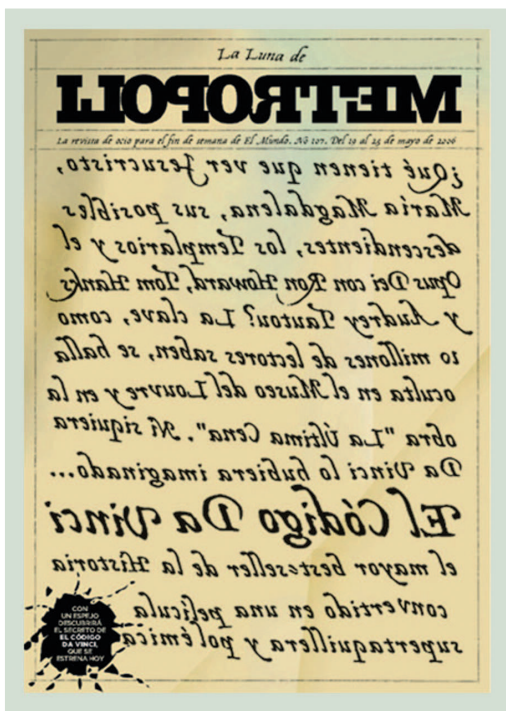 La Luna de
METROPOLI
La revista de ocio para el fin de semana de El Mundo. Nº 107. Del 19 al 25 de mayo de 2006
¿Qué tienen que ver Jesucristo,
María Magdalena, sus posibles
descendientes, los Templarios y el
Opus Dei con Ron Howard, Tom Hanks
y Audrey Tautou? La clave, como
10 millones de lectores saben, se halla
oculta en el Museo del Louvre y en la
obra "La Última Cena". Ni siquiera
Da Vinci lo hubiera imaginado...
El Código Da Vinci
el mayor bestseller de la Historia
convertido en una película
supertaquillera y polémica
CON
UN ESPEJO
DESCUBRIRÁ
EL SECRETO DE
EL CÓDIGO
DA VINCI,
QUE SE
ESTRENA HOY